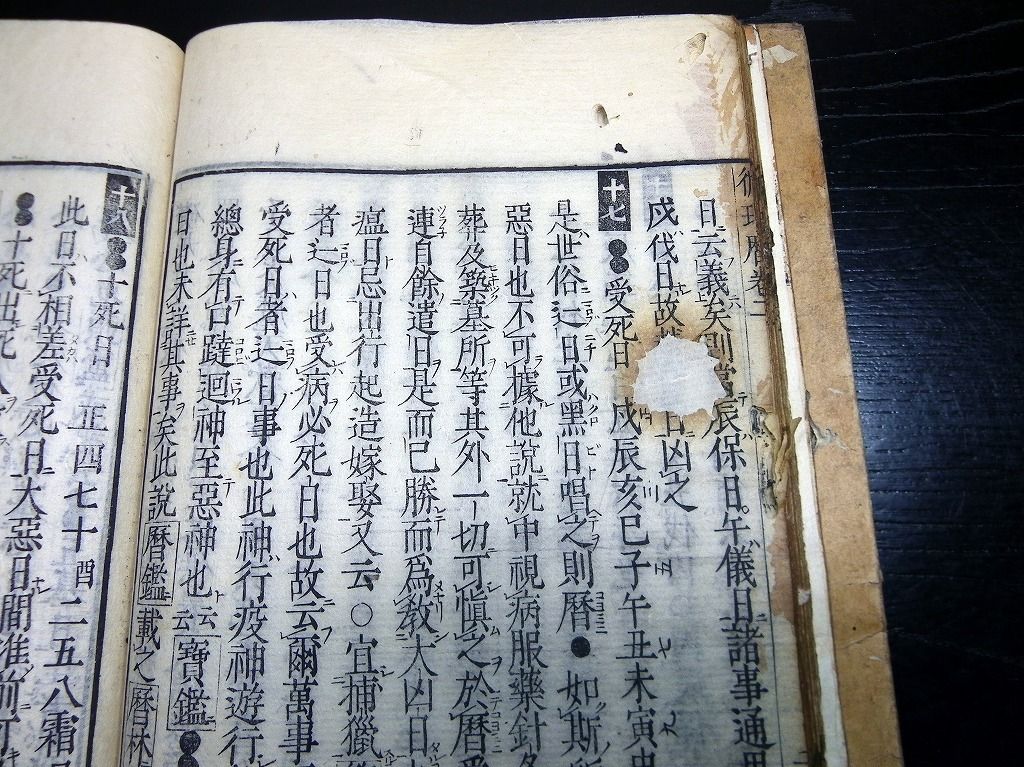 日云義矣則當辰保日午儀日諸事通用
戊伐日故 日凶之
十七 受死日 戌辰亥巳子午丑未寅申
是世俗辷日或黑日唱之則曆●如斯所
惡日也不可據他說就中視病服藥針
葬及築墓所等其外一切可愼之於曆
連自餘遣日是而已勝而爲敎大凶日
瘟日忌出行起造嫁娶又云○宜捕獵
者辷日也受病必死日也故云爾萬事
受死日者辷日事也此神行疫神遊行
總身有口躂迴神至惡神也云云寶鑑
日也未詳其事矣此說曆鑑載之曆林
十八 十死日 正四七十酉二五八霜
此日不相差受死日大惡日間准前可
十死出死